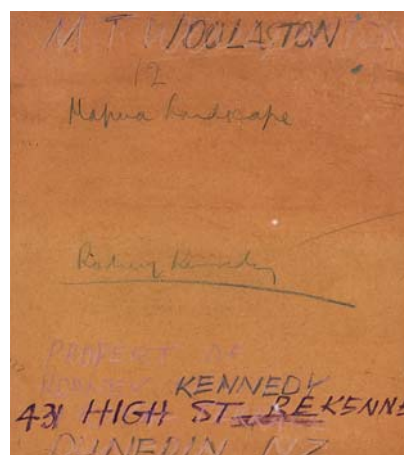 M T WOOLLASTON
12
Mapua Landscape
Rodney Kennedy
PROPERTY OF
RODNEY KENNEDY
431 HIGH ST REKENNE
DUNEDIN NZ